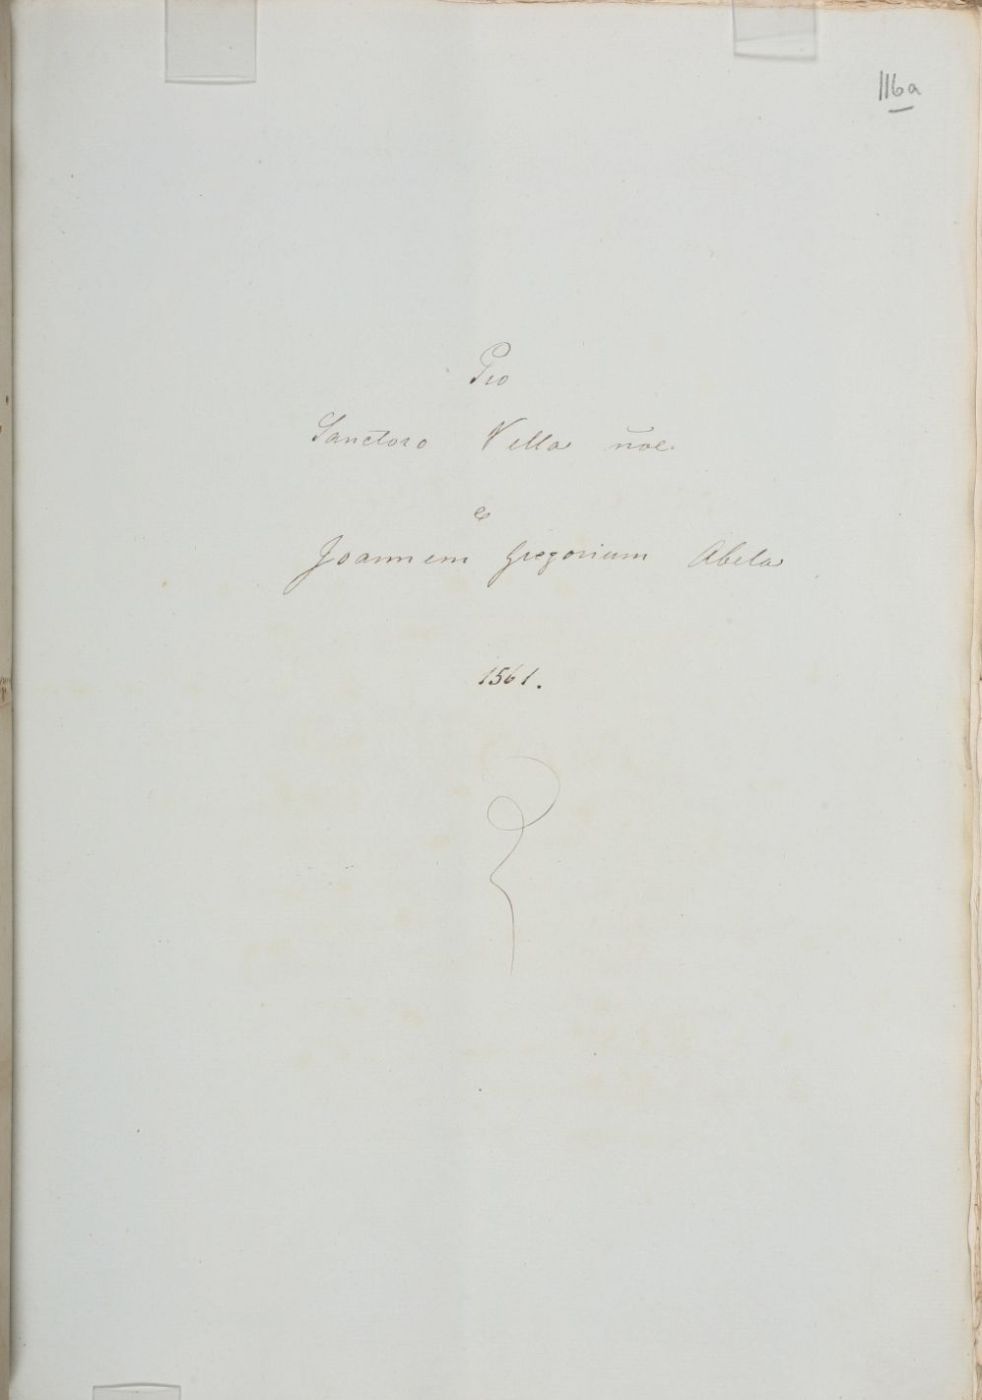 116a
Pro
Sanctoro Vella n̄oe.
e
Joannem Gregorium Abela
1561.